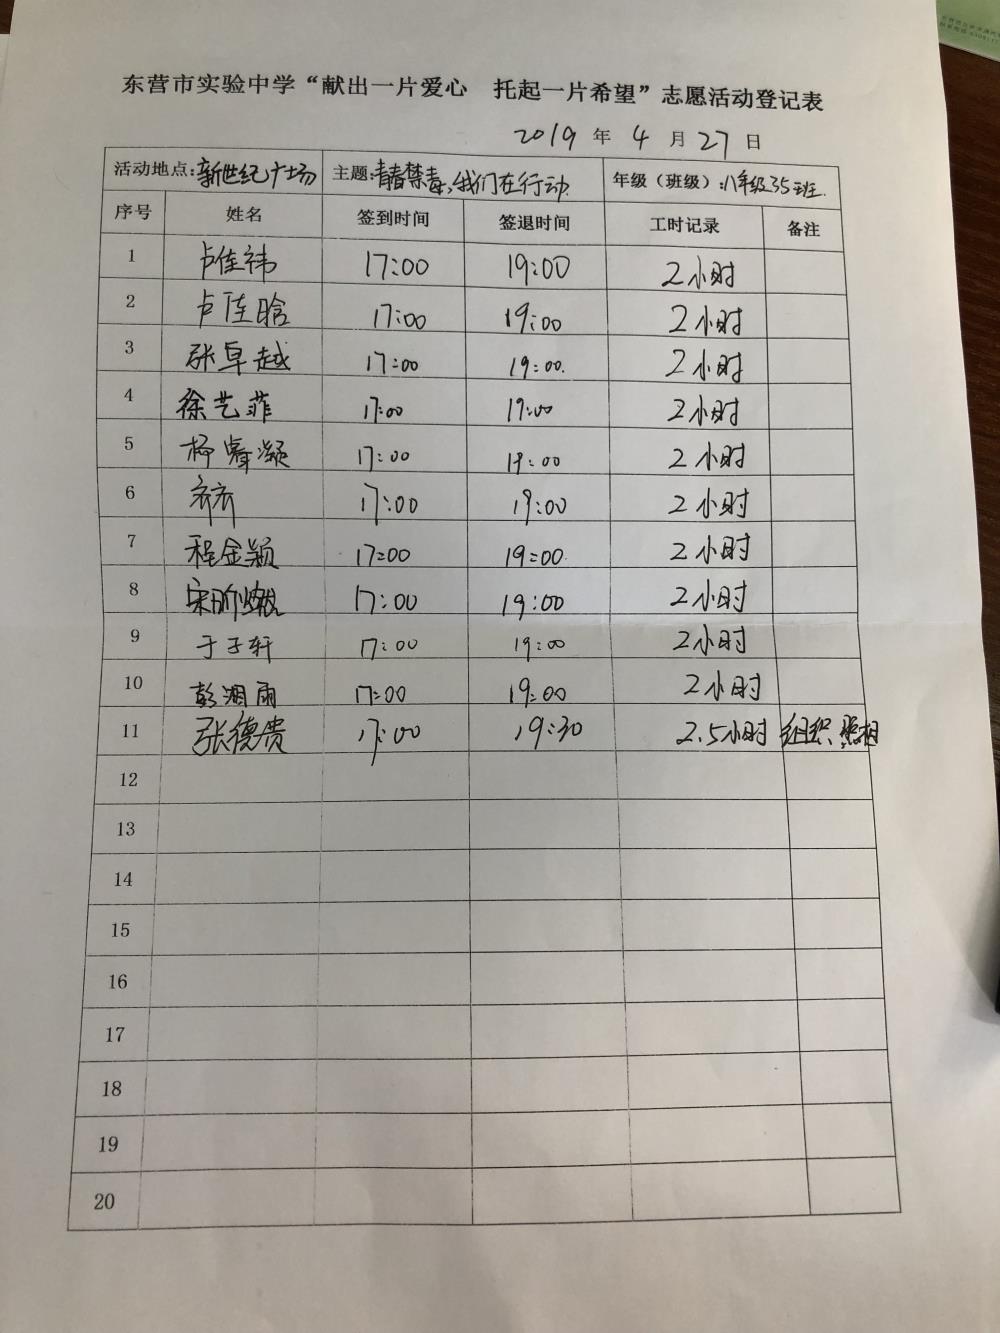 东营市实验中学“献出一片爱心 托起一片希望”志愿活动登记表
2019 年 4 月 27 日
活动地点:新世纪广场 主题:青春禁毒,我们在行动 年级（班级）:八年级35班
序号 姓名 签到时间 签退时间 工时记录 备注
1 卢佳祎 17:00 19:00 2小时
2 卢佳晗 17:00 19:00 2小时
3 张卓越 17:00 19:00. 2小时
4 徐艺菲 17:00 19:00 2小时
5 17:00 19:00 2小时
6 齐齐 17:00 19:00 2小时
7 程金颖 17:00 19:00. 2小时
8 17:00 19:00 2小时
9 于子轩 17:00 19:00 2小时
10 彭湘雨 17:00 19:00 2小时
11 张德贵 17:00 19:30 2.5小时 组织,照相
12
13
14
15
16
17
18
19
20